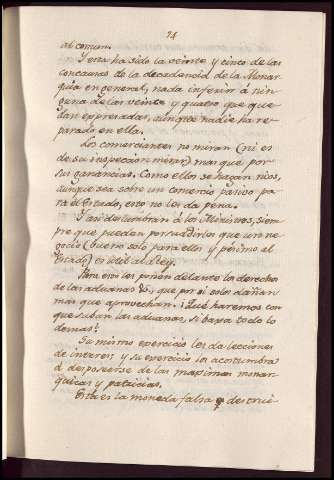 24
al comun.
Y esta ha sido la veinte y cinco de las
concausas de la decadencia de la Monar-
quia en general, nada inferior á nin-
guna de las veinte y quatro que que-
dan expresadas, aunque nadie ha re-
parado en ella.
Los comerciantes no miran (ni es
de su inspeccion mirar) mas que por
sus ganancias. Como ellos se hagan ricos,
aunque sea sobre un comercio pasivo pa-
ra el Estado, esto no les da pena.
Y asi deslumbran á los Ministros, siem-
pre que puedan persuadirlos que un ne-
gocio (bueno solo para ellos y pésimo el
Estado) es util al Rey.
Para eso les ponen delante los derechos
de las aduanas &, que por si solos dañan
más que aprovechan. ¿Qué haremos con
que suban las aduanas, si baxa todo lo
demas?
Su mismo exercicio les da lecciones
de interes; y su exercicio los acostumbra
á desposeerse de las maximas monar-
quicas y patricias.
Esta es la moneda falsa q destruie